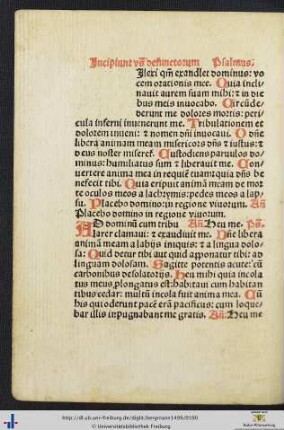 Incipiunt vḡ defunctorum Psalmus.
Ilexi qm̄ exaudiet dominus: vo
cem orationis mee. Quia incli
nauit aurem suam mihi: ⁊ in die
bus meis inuocabo. Circūde
derunt me dolores mortis: peri
cula inferni inuenerunt me. Tribulationem et
dolorem inueni: ⁊ nomen dn̄i inuocaui. O dn̄e
libera animam meam misericors dn̄s ⁊ iustus: ⁊
deus noster miseret᷑. Custodiens paruulos do-
minus: humiliatus sum ⁊ liberauit me. Con
uertere anima mea in requiē tuam: quia dn̄s be
nefecit tibi. Quia eripuit animā meam de mor
te oculos meos a lachrymis: pedes meos a lap-
su. Placebo domino: in regione viuorum. Añ
Placebo domino in regione viuorum.
AD dominū cum tribu Añ. Heu me. Ps̄.
larer clamaui: ⁊ exaudiuit me. Dn̄e libera
animā meam a labijs iniquis: ⁊ a lingua dolo-
sa. Quid detur tibi aut quid apponatur tibi: ad
linguam dolosam. Sagitte potentis acute: cū
carbonibus desolatorijs. Heu mihi quia incola
tus meus ꝓlongatus est: habitaui cum habitan
tibus cedar: multū incola fuit anima mea. Cū
his qui oderunt pacē erā pacificus: cum loque
bar illis inpugnabant me gratis. Añ. Heu me
http://dl.ub.uni-freiburg.de/diglit/bergmann1499/0180
© Universitätsbibliothek Freiburg